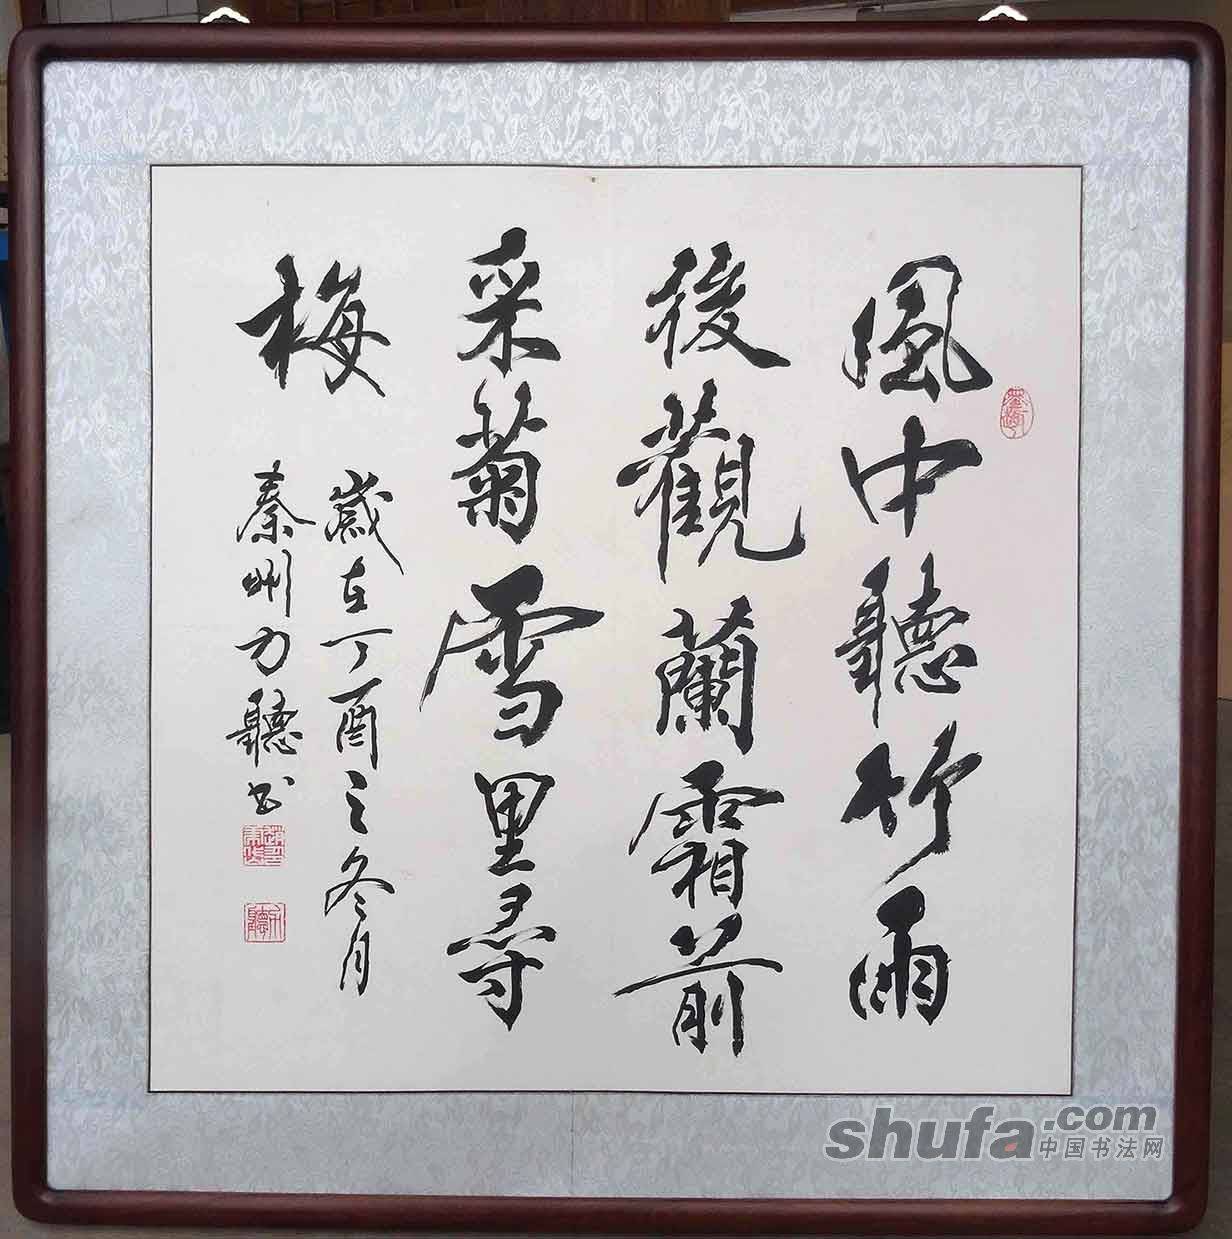 風中聽竹雨
後觀蘭霜前
采菊雪里尋
梅
歲在丁酉之冬月
秦州力聽书
shufa.com
中国书法网